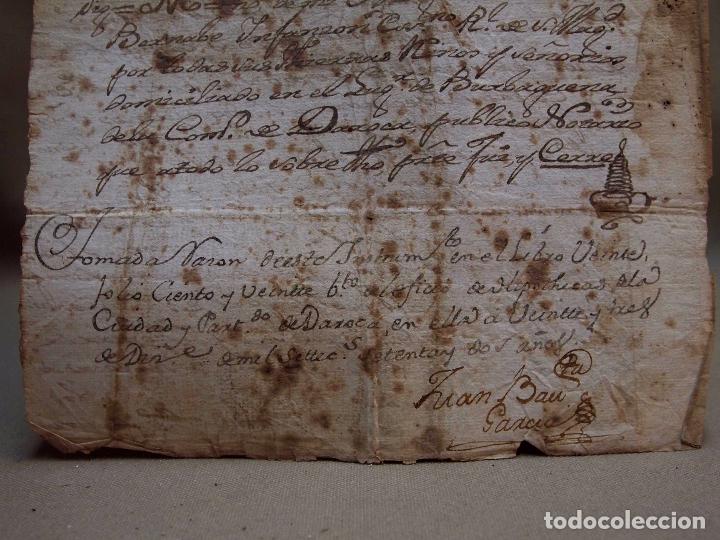 Sig=No=no de mi
Bernabe Infanzon Rl. de S. Magd.
por todas sus Tierras Rnos. y Señorios
domiciliado en el Lugr. de Burbaguena
dela Comd. de Daroca, publico Notario
que atodo lo sobredho prte. fui y Cerre
Tomada Razon deeste Instrumto. en el Libro Veinte,
folio Ciento y Veinte bto. del oficio de Hipothecas dela
Ciudad y Partdo. de Daroca, en ella a Veinte y tres
de Dize. de mil Settecs. Setenta y dos años.
Juan Bauta
Garcia
todocoleccion
todocoleccion.net